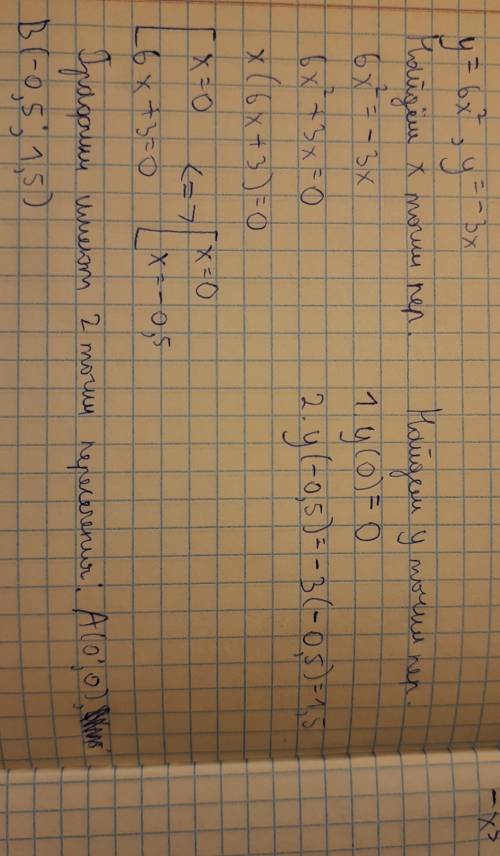 y = 6x², y = -3x
Найдём x точки пер.
6x² = -3x
6x² + 3x = 0
x(6x + 3) = 0
[x = 0 <=> [x = 0
[6x + 3 = 0 [x = -0,5
Найдем y точки пер.
1. y(0) = 0
2. y(-0,5) = -3(-0,5) = 1,5
Графики имеют 2 точки пересечения: A(0;0),
B(-0,5; 1,5)
-x³